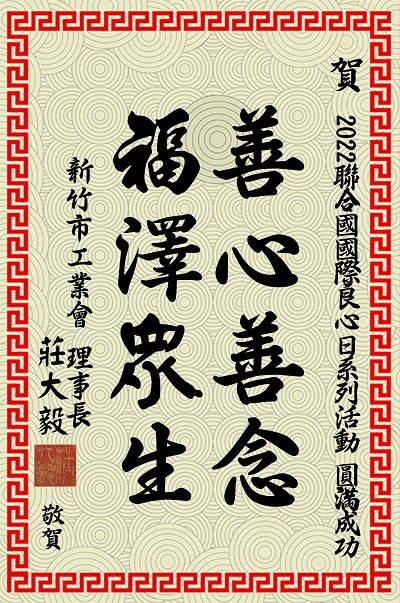 賀 2022聯合國國際良心日系列活動 圓滿成功
善心善念
福澤眾生
新竹市工業會 理事長
莊大毅
敬賀